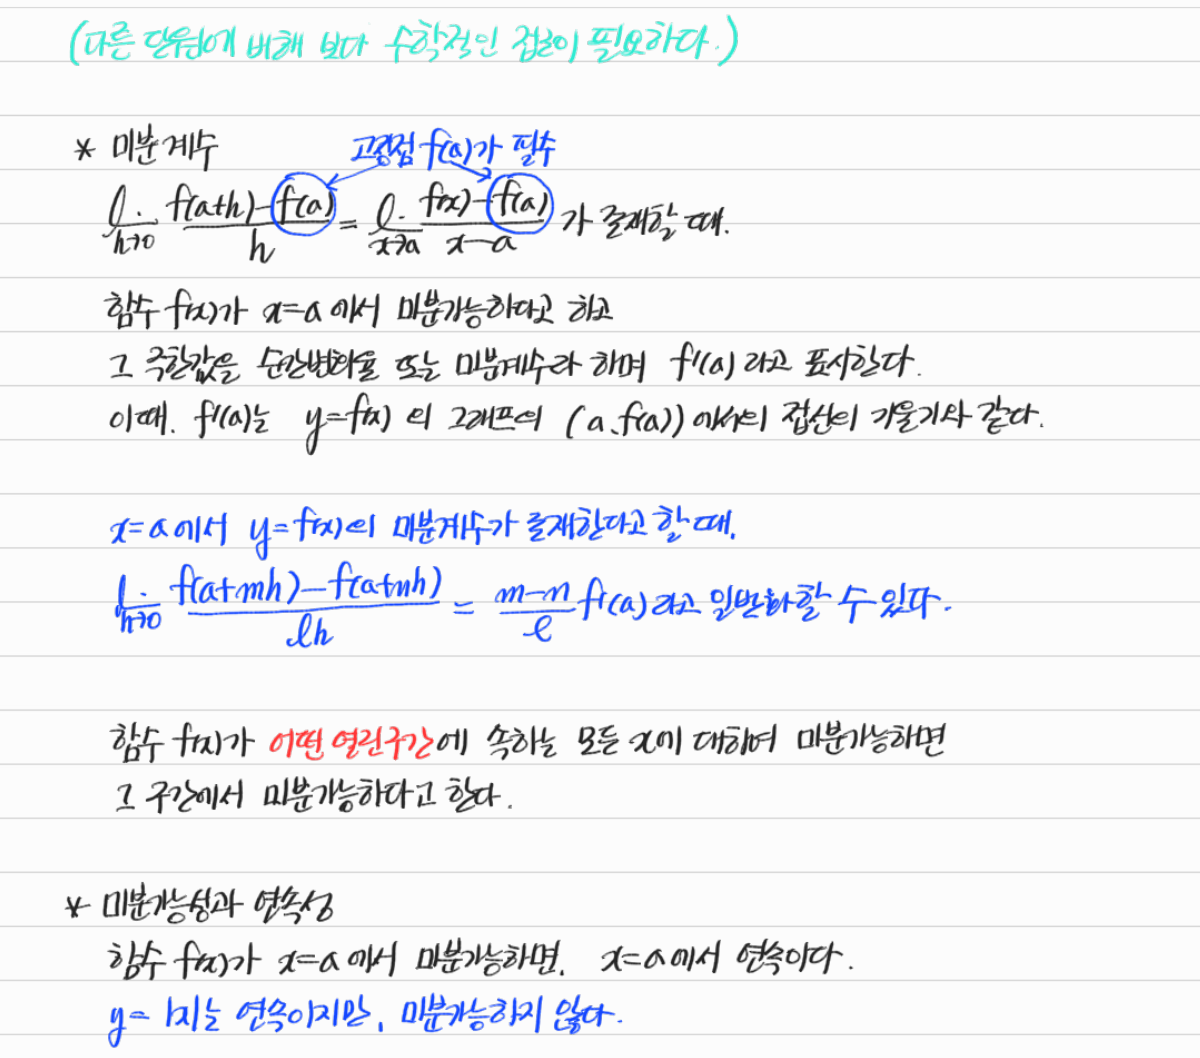 (다른 단원에 비해 보다 수학적인 접근이 필요하다.)
* 미분계수 고정점 f(a)가 필수
lim_{h→0} (f(a+h)-f(a))/h = lim_{x→a} (f(x)-f(a))/(x-a) 가 존재할 때.
함수 f(x)가 x=a 에서 미분가능하다고 하고
그 극한값을 순간변화율 또는 미분계수라 하며 f'(a) 라고 표시한다.
이때. f'(a)는 y=f(x) 의 그래프의 (a, f(a)) 에서의 접선의 기울기와 같다.
x=a에서 y=f(x)의 미분계수가 존재한다고 할 때,
lim_{h→0} (f(a+mh)-f(a+nh))/(lh) = (m-n)/l f'(a) 라고 일반화할 수 있다.
함수 f(x)가 어떤 열린구간에 속하는 모든 x에 대하여 미분가능하면
그 구간에서 미분가능하다고 한다.
* 미분가능성과 연속성
함수 f(x)가 x=a 에서 미분가능하면, x=a에서 연속이다.
y=|x|는 연속이지만, 미분가능하지 않다.